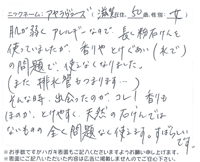 ニックネーム:アヤラダンーズ (滋賀在住 50歳、性別:女)
肌が弱く、アレルギーなので、長く粉石けんを
使っていましたが、香りや とけぐあい(水で)
の問題で、使えなくなりました。
(また 排水管もつまります…)
そんな時、出会ったのが、コレ! 香りも
ほのか、とけやすく、天然の石けんでは
ないものの 全く問題なく使えます。すばらしい
です。
※お手数ですがハガキ裏面もご記入くださいますようお願い申し上げます。
※裏面にご記入いただいた内容は広告に掲載しませんのでご安心下さい。